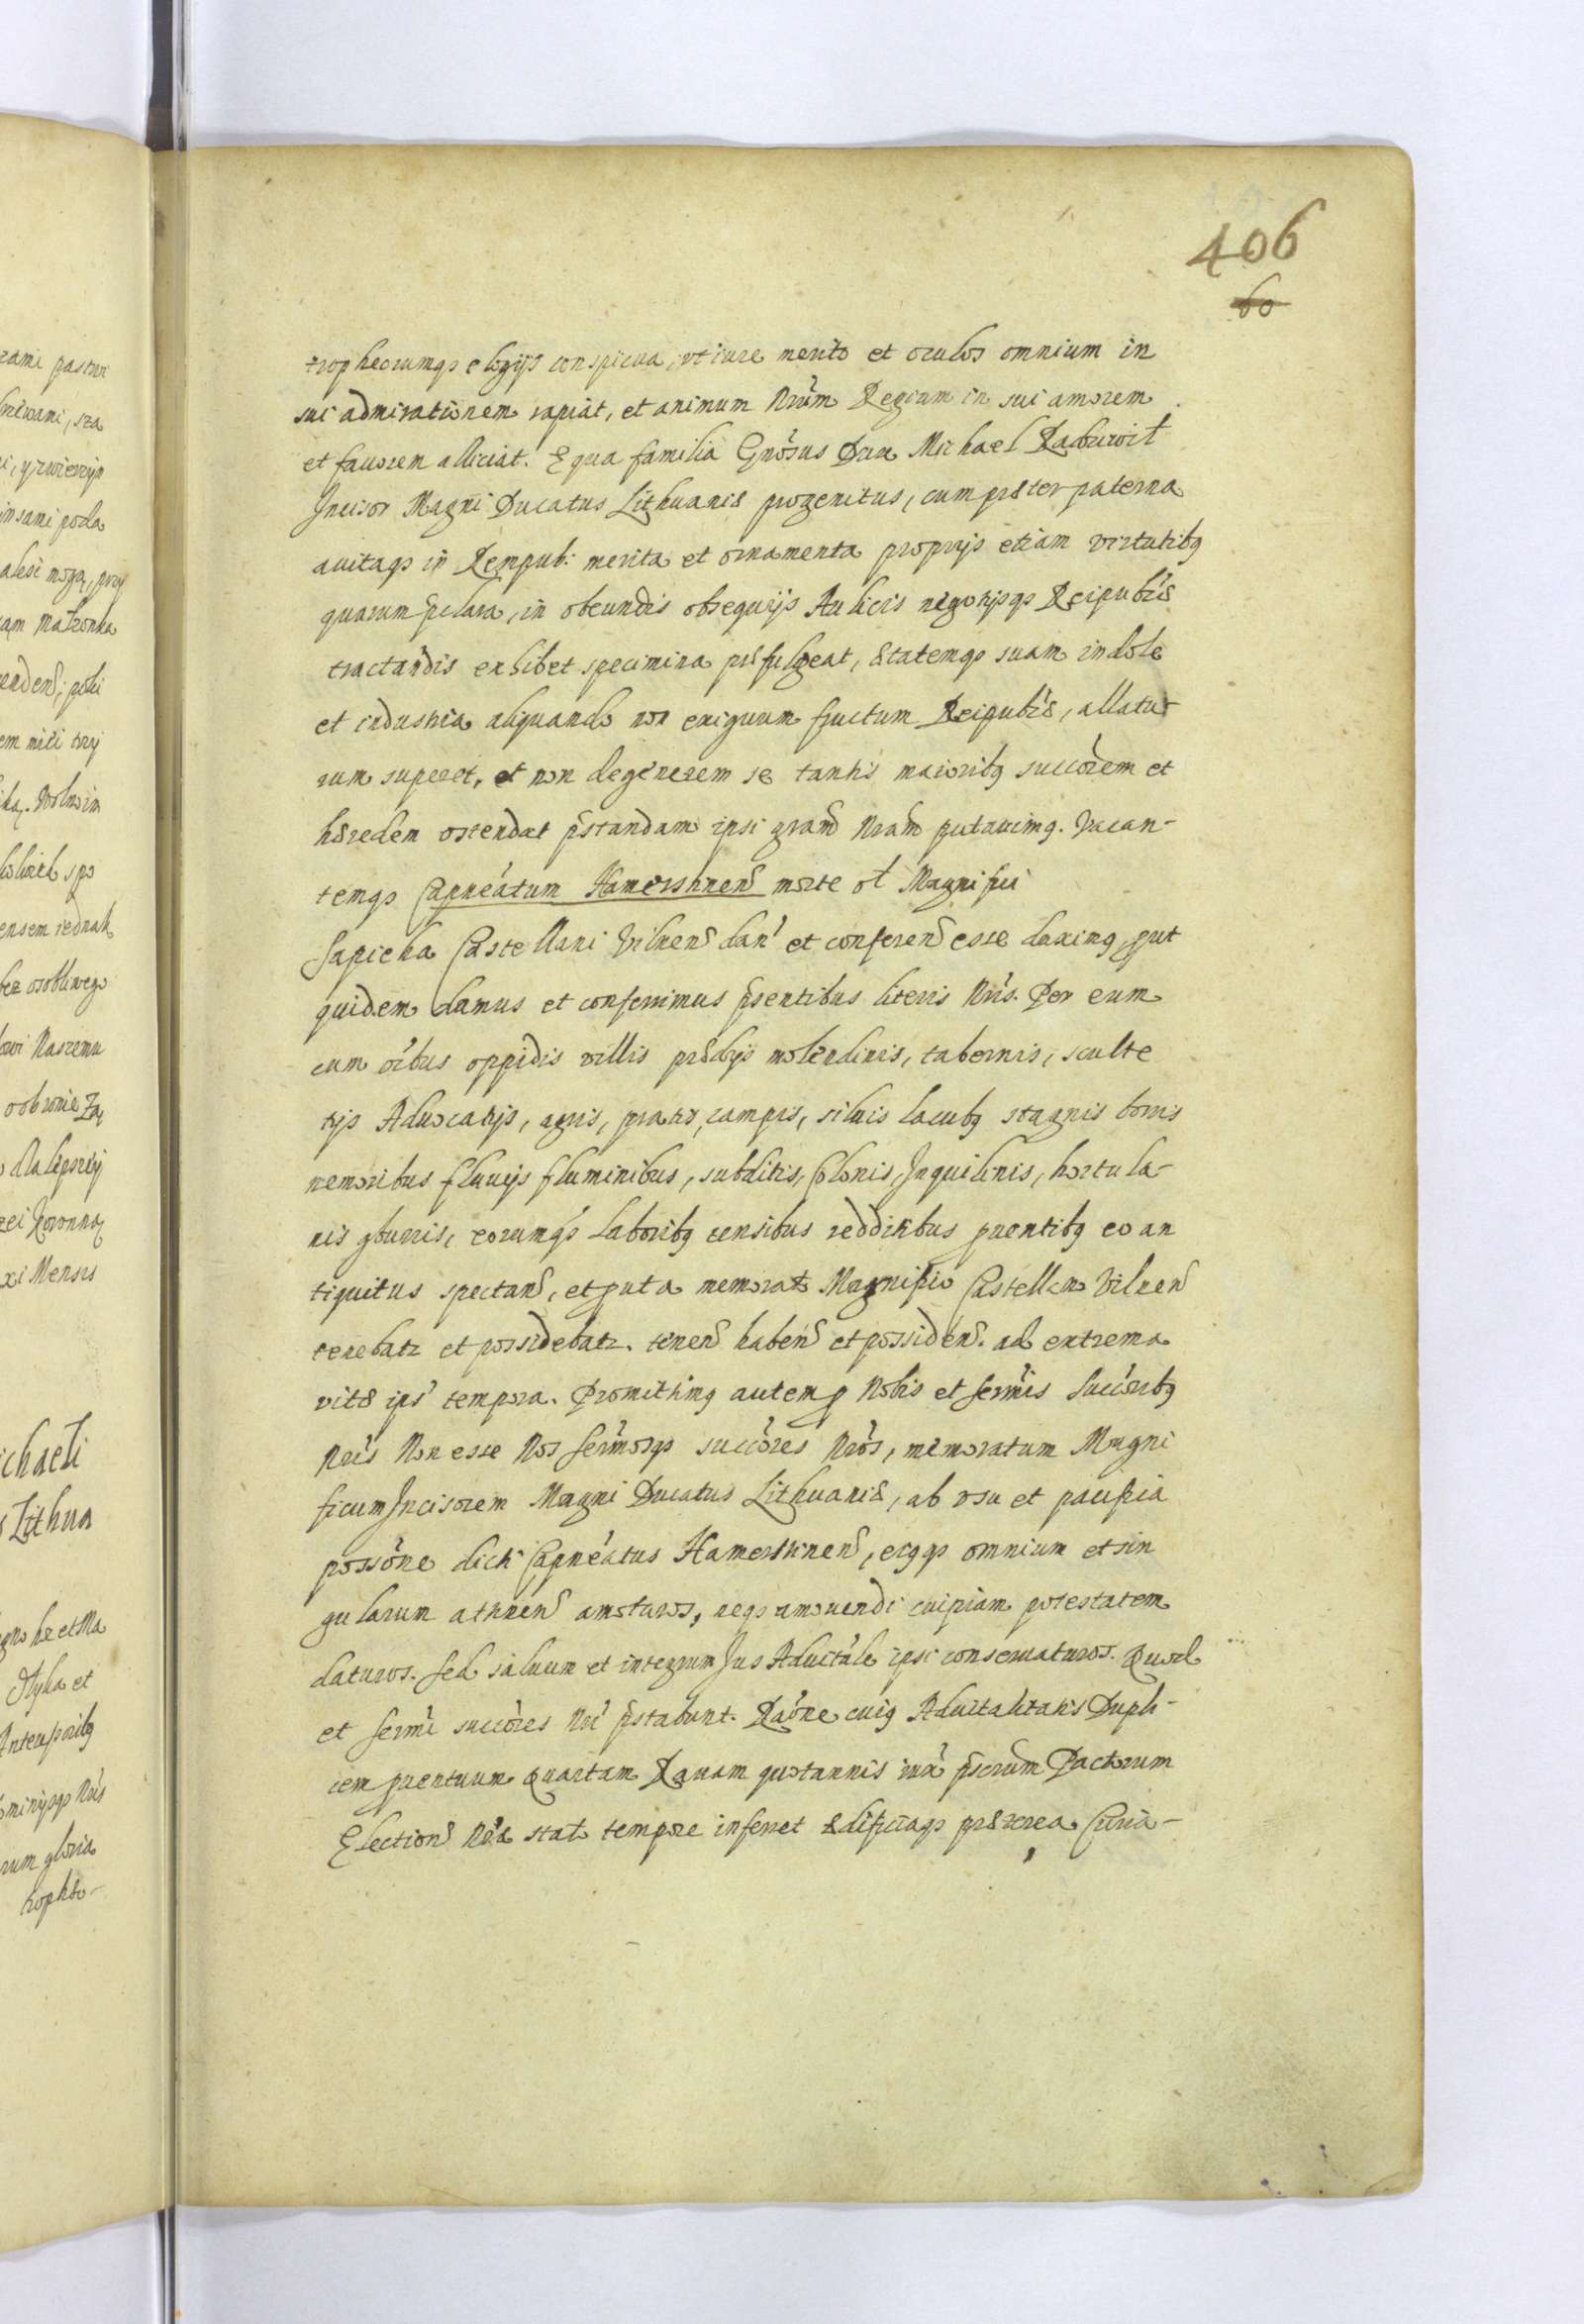 406
60
tropheorumqꝫ elogijs conspicua, vt iure merito et oculos omnium in
sui admirationem rapiat, et animum Nrum Regium in sui amorem
et fauorem alliciat. E qua familia Gnosus Dnn Michael Radziwił
Incisor Magni Ducatus Lithuaniæ progenitus, cum præter paterna
auitaqꝫ in Rempub: merita et ornamenta proprijs etiam virtutibꝫ
quarum pclara, in obeundis obsequijs Aulicis negotijsqꝫ Reipublæ
tractandis exhibet specimina præfulgeat, ætatemqꝫ suam indole
et industria aliquando non exiguum fructum Reipublæ, allatu-
rum superet, et non degenerem se tantis maioribꝫ succorem et
hæredem ostendat pstandam ipsi gram Nram putauimꝫ. Vacan-
temqꝫ Capneatum Hamersztinen morte ol Magnifici
Sapieha Castellani Vilnen dan et conferen esse duximꝫ, put
quidem damus et conferimus psentibus literis Nris. Per eum
cum oibus oppidis villis prædijs molendinis, tabernis, sculte
tijs Aduocatijs, agris, pratis, campis, siluis lacubꝫ stagnis borris
nemoribus fluuijs fluminibus, subditis, Colonis, Inquilinis, hortula-
nis gburris, eorumqꝫ laboribꝫ censibus redditibus puentibꝫ eo an
tiquitus spectan, et put a memorato Magnifico Castellano Vilnen
tenebatr et possidebatr. tenen haben et possiden. ad extrema
vitæ ips tempora. Promittimꝫ autem p Nobis et Sermis Succoribꝫ
Nris Non esse Nos Sermosqꝫ succores Nros, memoratum Magni
ficum Incisorem Magni Ducatus Lithuaniæ, ab vsu et pacifica
possone dicti Capneatus Hamersztinen, eiꝫqꝫ omnium et sin
gularum attinen amoturos, neqꝫ amouendi cuipiam potestatem
daturos. Sed saluum et integrum Jus Aduitale ipsi conseruaturos. Quod
et Sermi succores Nri pstabunt. Raone cuiꝫ Aduitalitatis Dupli-
cem puentuum Quartam Rauam quotannis iux pscrum Pactorum
Election Nræ stato tempore inferret ædificiaqꝫ præterea Curia-